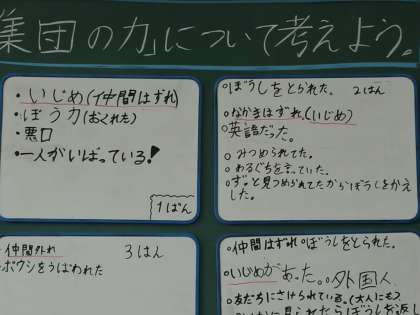 集団の力」について考えよう。
・いじめ(仲間はずれ)
・ぼう力(おくれた)
・悪口
・一人がいばっている!
1ぱん
○ぼうしをとられた。 2はん
○なかまはずれ。(いじめ)
○英語だった。
○みつめられてた。
○わるぐちを言っていた。
○ずっと見つめられてたからぼうしをかえ
した。
・仲間外れ 3はん
・ボウシをうばわれた
○仲間はずれ○ぼうしをとられた。
○いじめがあった。○外国人
○友だちにさけられている。(大人にも)
見られたらぼうしを返し